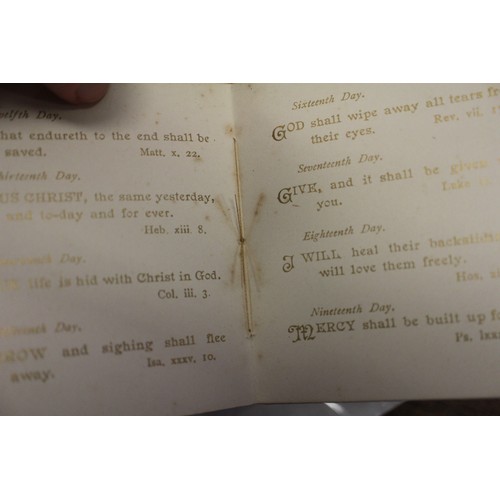 elfth Day.
hat endureth to the end shall be
saved. Matt. x. 22.
hirteenth Day.
US CHRIST, the same yesterday,
and to-day and for ever.
Heb. xiii. 8.
Day.
life is hid with Christ in God.
Col. iii. 3.
Day.
ROW and sighing shall flee
away. Isa. xxxv. 10.
Sixteenth Day.
GOD shall wipe away all tears fr
their eyes. Rev. vii. 1
Seventeenth Day.
GIVE, and it shall be given
you. Luke
Eighteenth Day.
I WILL heal their backslidin
will love them freely.
Hos.
Nineteenth Day.
MERCY shall be built up fo
Ps. lxx